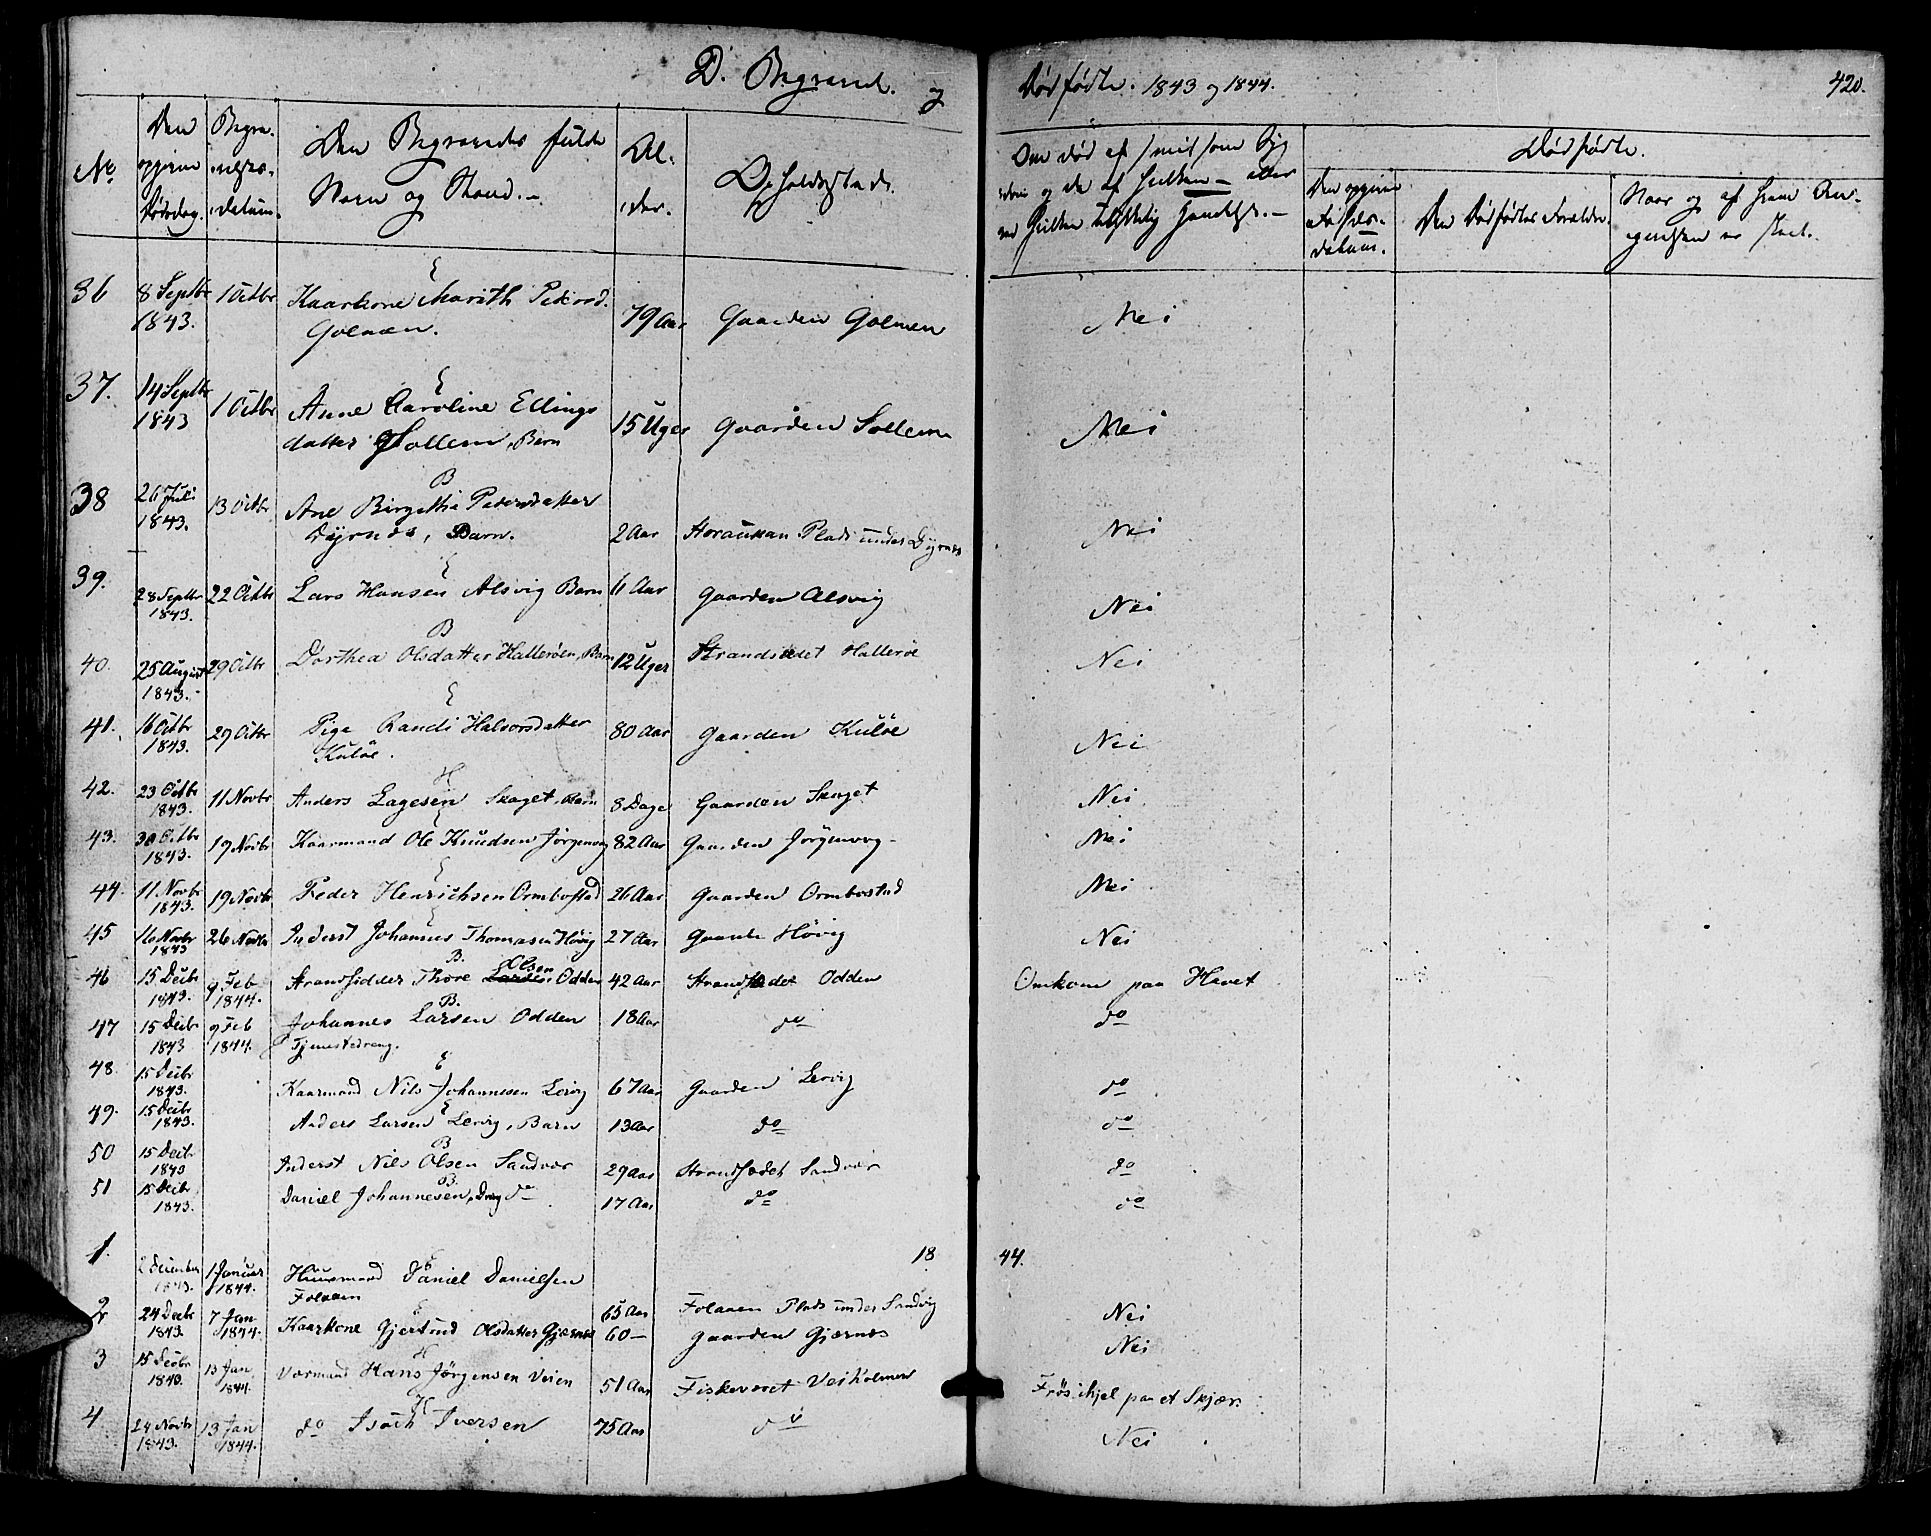 D. Begravede. og
Dødfødte. 1843 og 1844.
420.
No.
Den opgivne Dødsdag.
Begravelses-datum.
Den Begravedes fulde Navn og Stand.-
Alder.
Opholdsstæds.
Om død af smitsom Syg-
dom og da af hvilken - eller
ved hvilken ulykkelig Hændelse.-
Dødfødte.
Den opgivne Fødsels-datum.
Den Dødfødtes Forældre.
Naar og af hvem An-
givelsen er skeet.
36 8 Septbr 1843. 1 Octbr E Kaarkone Marith Pedersd. Golmen. 79 Aar Gaarden Golmen Nei
37. 14 Septbr 1843 1 Octbr E Anne Caroline Ellings datter Sollem, Barn 15 Uger Gaarden Sollem Nei
38 26 Juli 1843. 13 Octbr B Ane Birgethe Pedersdatter Dyrnæs, Barn. 2 Aar Plads under Dyrnæs Nei
39. 28 Septbr 1843. 22 Octbr E Lars Hansen Alsvig Barn 11 Aar Gaarden Alsvig Nei
40. 25 August 1843.- 29 Octbr B Dorthea Olsdatter Hallerøen, Barn 12 Uger Strandsædet Hallerøe Nei
41. 16 Octbr 1843. 29 Octbr E Pige Randi Halvorsdatter Kuløe. 80 Aar Gaarden Kuløe Nei
42. 23 Octbr 1843. 11 Novbr H Anders Lagesen Skaget, Barn 8 Dage Gaarden Skaget Nei
43. 30 Octbr 1843. 19 Novbr E Kaarmand Ole Knudsen Jørgenvog 82 Aar Gaarden Jørgenvog- Nei
44. 11 Novbr 1843. 19 Novbr E Peder Henrichsen Ormbostad 26 Aar Gaarden Ormbostad Nei
45 16 Novbr 1843 26 Novbr E Inderst Johannes Thomasen Høvig 27 Aar Gaarde Høvig Nei
46 15 Decbr 1843. 9 Feb 1844. B. Strandsidder Thore Larsen Olsen Odden 42 Aar Strandsædet Odden Omkom paa Havet
47 15 Decbr 1843 9 Feb 1844. B. Johannes Larsen Odden Tjenestedreng. 18 Aar do do
48. 15 Decbr 1843. E Kaarmand Nils Johannesen Lervig 67 Aar Gaarden Lervig do
49. 15 Decbr 1843. E Anders Larsen Lervig, Barn 13 Aar do do
50 15 Decbr 1843 B Inderst Niels Olsen Sandvær 29 Aar Strandsædet Sandvær do
51 15 Decbr 1843. B. Daniel Johannesen, Dreng do 17 Aar do do
1844.
1. 2 December 1843. 1 Januar 1844. E Huusmand Daniel Danielsen Folaaen 65 Aar Folaaen Plads under Sandvig Nei
2 24 Decbr 1843. 7 Jan 1844. E Kaarkone Gjertrud Olsdatter Gjærnæs 60- Gaarden Gjærnæs Nei
3 15 Decbr 1843. 13 Jan 1844. H Værmand Hans Jørgensen Veien 51 Aar Fiskeværet Veiholmen Frøs ihjel paa et Skjær.
4. 24 Novbr 1843. 13 Jan 1844. H do Isach Iversen 75 Aar do Nei